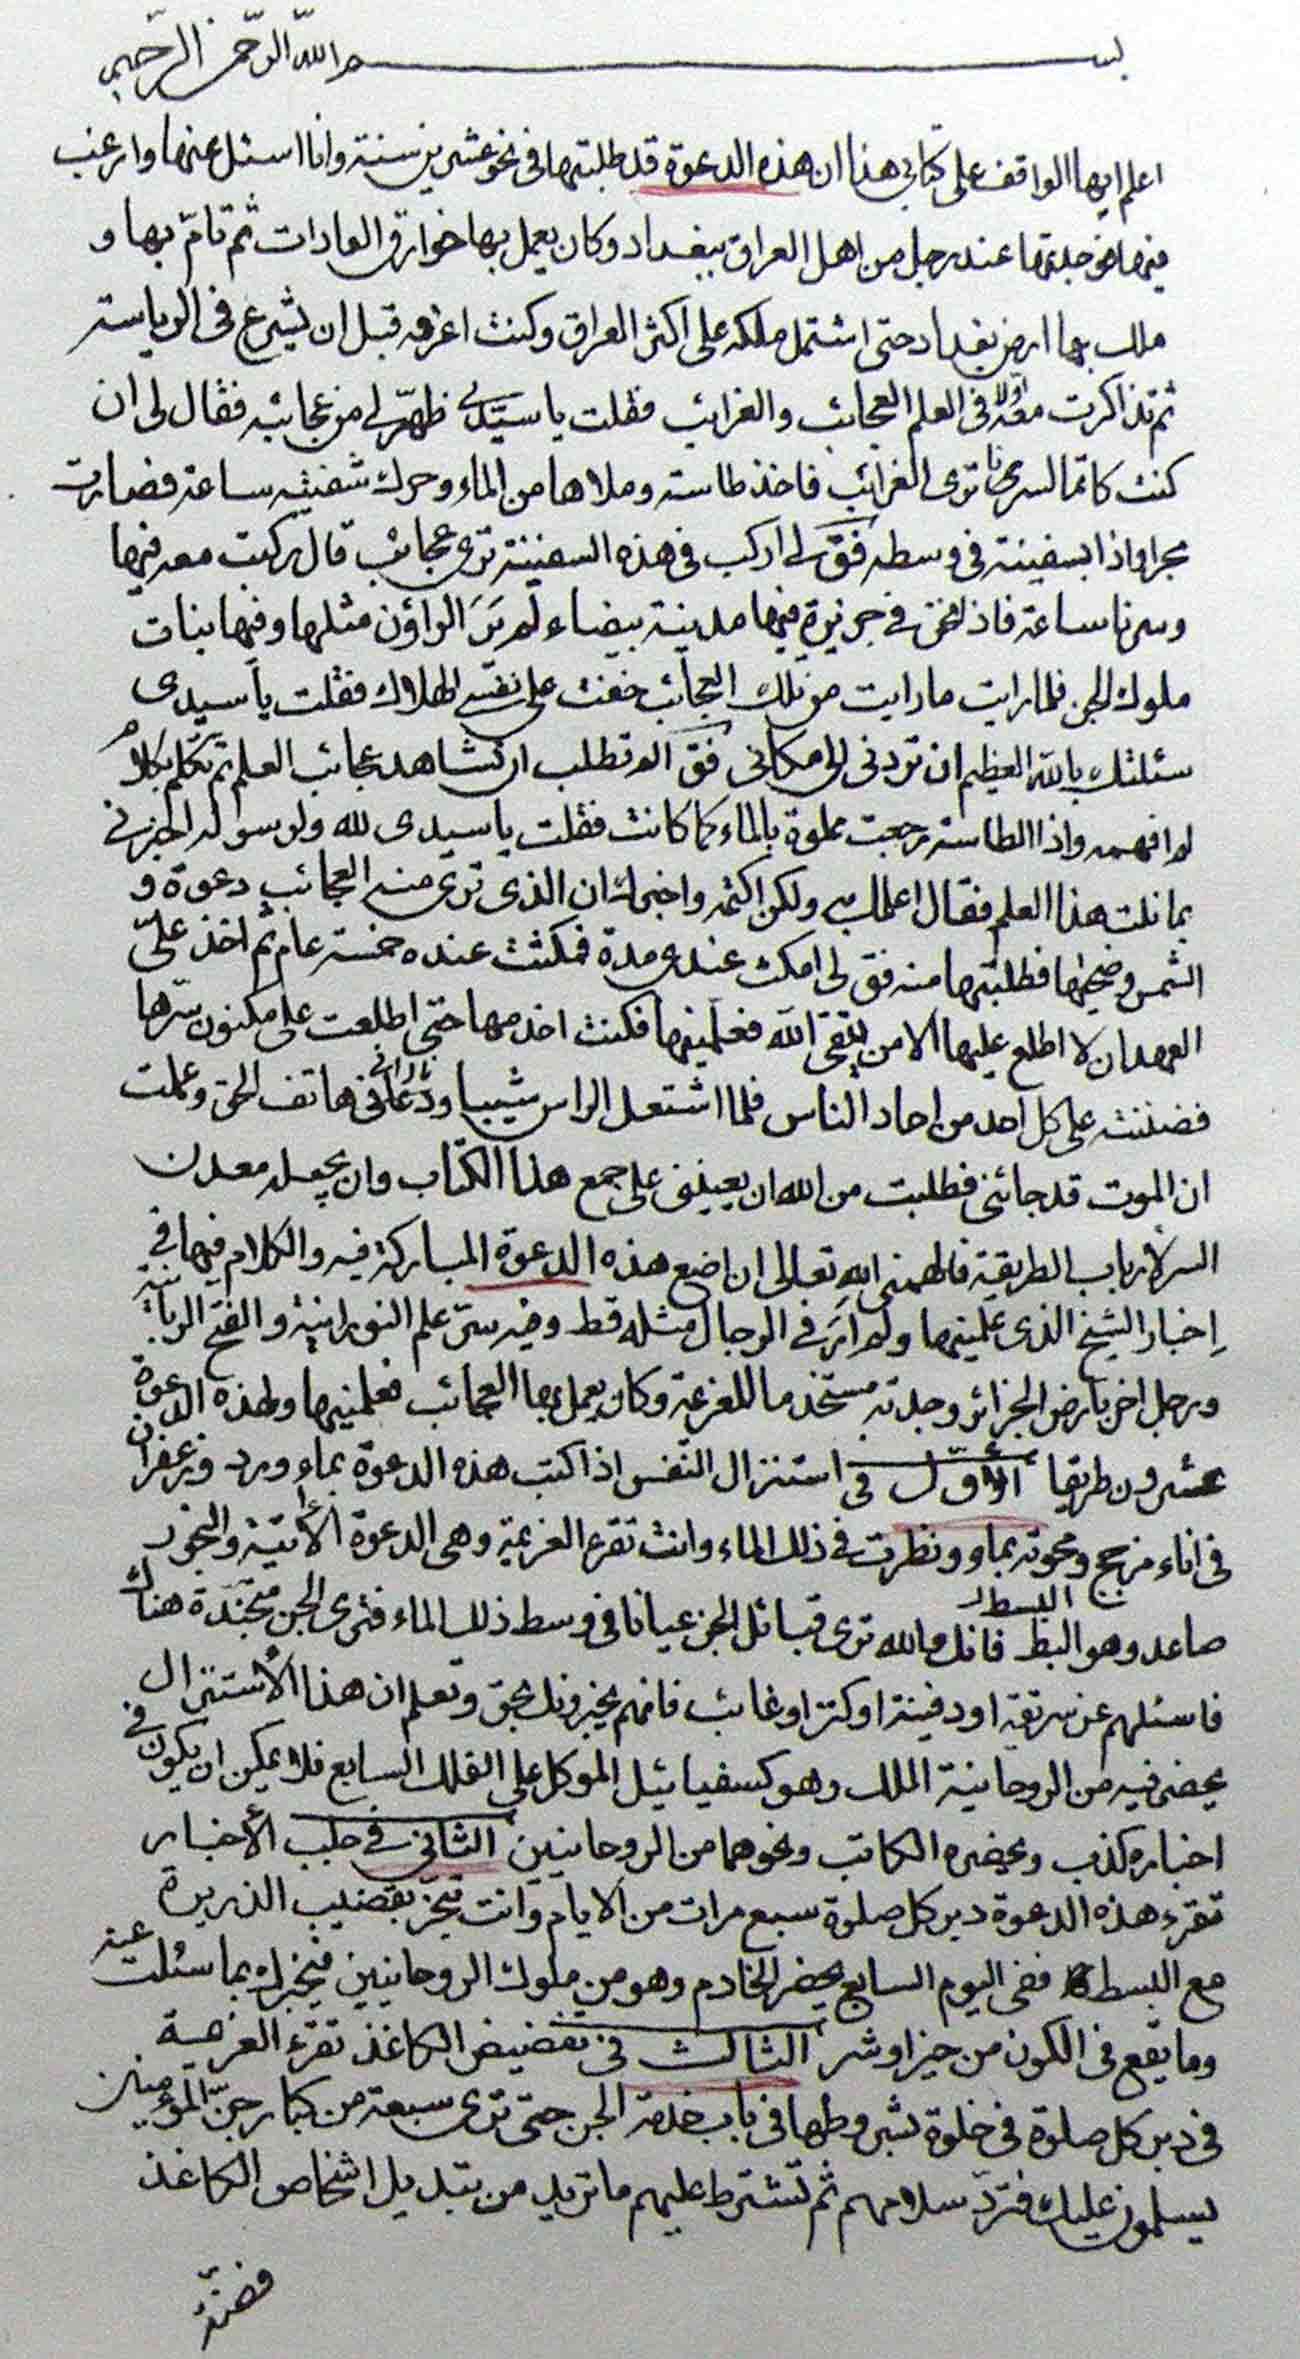 بسم الله الرحمن الرحيم
اعلم ايها الواقف على كتابي هذا ان هذه الدعوة قد طلبتها فى نحو عشرين سنة وانا اسئل عنها وارغب
فيها فوجدتها عند رجل من اهل العراق ببغداد وكان يعمل بها خوارق العادات ثم تامّ بها و
ملك بها ارض بغداد حتى اشتمل ملكه على اكثر العراق وكنت اعرفه قبل ان يشرع فى الرياسة
ثم تذاكرت معه اوّلا فى العلم العجائب والغرائب فقلت يا سيّدى ظهّر لى من عجائبه فقال لى ان
كنت كاتما لسرى ترى الغرائب فاخذ طاسة وملاها من الماء وحرك شفتيه ساعة فصارت
بحرا واذا بسفينة فى وسطه فقَ لى اركب فى هذه السفينة ترى عجائب قال ركبت معه فيها
وسرنا ساعة فاذ نحن فى جزيرة فيها مدينة بيضاء لم يَرَ الراؤن مثلها وفيها بنات
ملوك الجن فلما رايت ما رايت من تلك العجائب خفت على نفسى الهلاك فقلت يا سيدى
سئلتك بالله العظيم ان تردنى الى مكانى فقَ الم تطلب ان تشاهد عجائب العلم ثم تكلم بكلام
لم افهمه واذا الطاسة رجعت مملوة بالماء كما كانت فقلت يا سيدى لله ولرسوله اخبرنى
بما نلت هذا العلم فقال اعلمك ولكن اكتمه واخبرك ان الذى ترى منه العجائب دعوة و
الشمس وضحيها فطلبتها منه فق لى امكث عندى مدة فمكثت عنده خمسة عام ثم اخذ علىّ
العهد ان لا اطلع عليها الا من يتقى الله فعلمنيها فكنت اخدمها حتى اطلعت على مكنون سرّها
فضننته على كل احد من احاد الناس فلما اشتعل الراس شيبا ودعانى هاتف الحق وعملت
ان الموت قد جائنى فطلبت من الله ان يعيننى على جمع هذا الكتاب وان يجعله معدن
السر لارباب الطريقة فالهمنى الله تعالى ان اضع هذه الدعوة المباركة فيه والكلام فيها فى
اِخبار الشيخ الذى علمنيها ولم اَرَ فى الرجال مثله قط وفيه سرّ علم النورانية والفتح الربانية
ورجل اخر بارض الجزائر وجدته مستخدما للعزيمة وكان يعمل بها العجائب فعلمنيها ولهذه الدعوة
عشرون طريقا الأوّل فى استنزال النفس اذا كتب هذه الدعوة بماء ورد وزعفران
فى اناء مزجج ومحوته بماء ونظرت فى ذلك الماء وانت تقرء العزيمة وهى الدعوة الأتية والبخور
صاعد وهو البظ البسطا فانك والله ترى قبائل الجن عيانا فى وسط ذلك الماء فترى الجن مجَنّدة هناك
فاسئلهم عن سرقة او دفينة او كنز او غائب فانهم يخبرونك بحق وتعلم ان هذا الأستنزال
يحضر فيه من الروحانية الملك وهو كسفيائيل الموكل على الفلك السابع فلا يمكن ان يكون فى
اخباره كذب ويحضره الكاتب ونحوهما من الروحانيين الثانى فى جلب الأخبار
تقرء هذه الدعوة دبر كل صلوة سبع مرات من الايام وانت تبخّر بقضيب الذريرة
مع البسطا ففى اليوم السابع يحضر الخادم وهو من ملوك الروحانيين فيخبرك بما سئلت عنه
وما يقع فى الكون من خير او شر الثالث فى تفضيض الكاغذ تقرء العزيمة
فى دبر كل صلوة فى خلوة بشروطها فى باب خدمة الجن حتى ترى سبعة من كبار جنّ المؤمنين
يسلمون عليك فتردّ سلامهم ثم تشترط عليهم ما تريد من تبديل اشخاص الكاغذ
فضّة